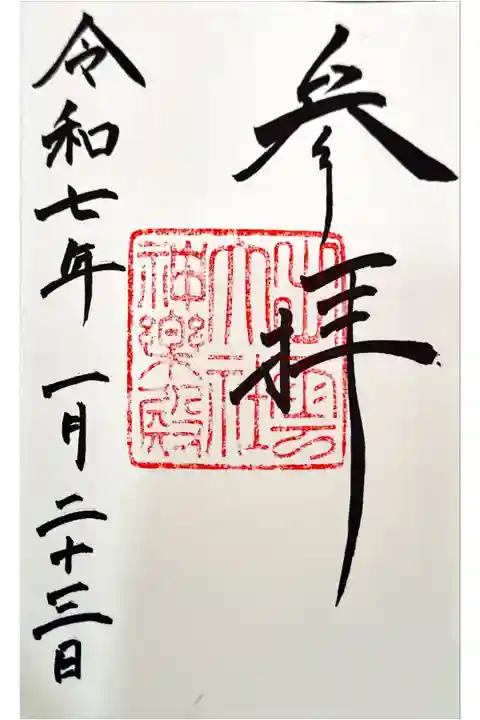 参拝
出雲
大社
神楽殿
令和七年一月二十三日